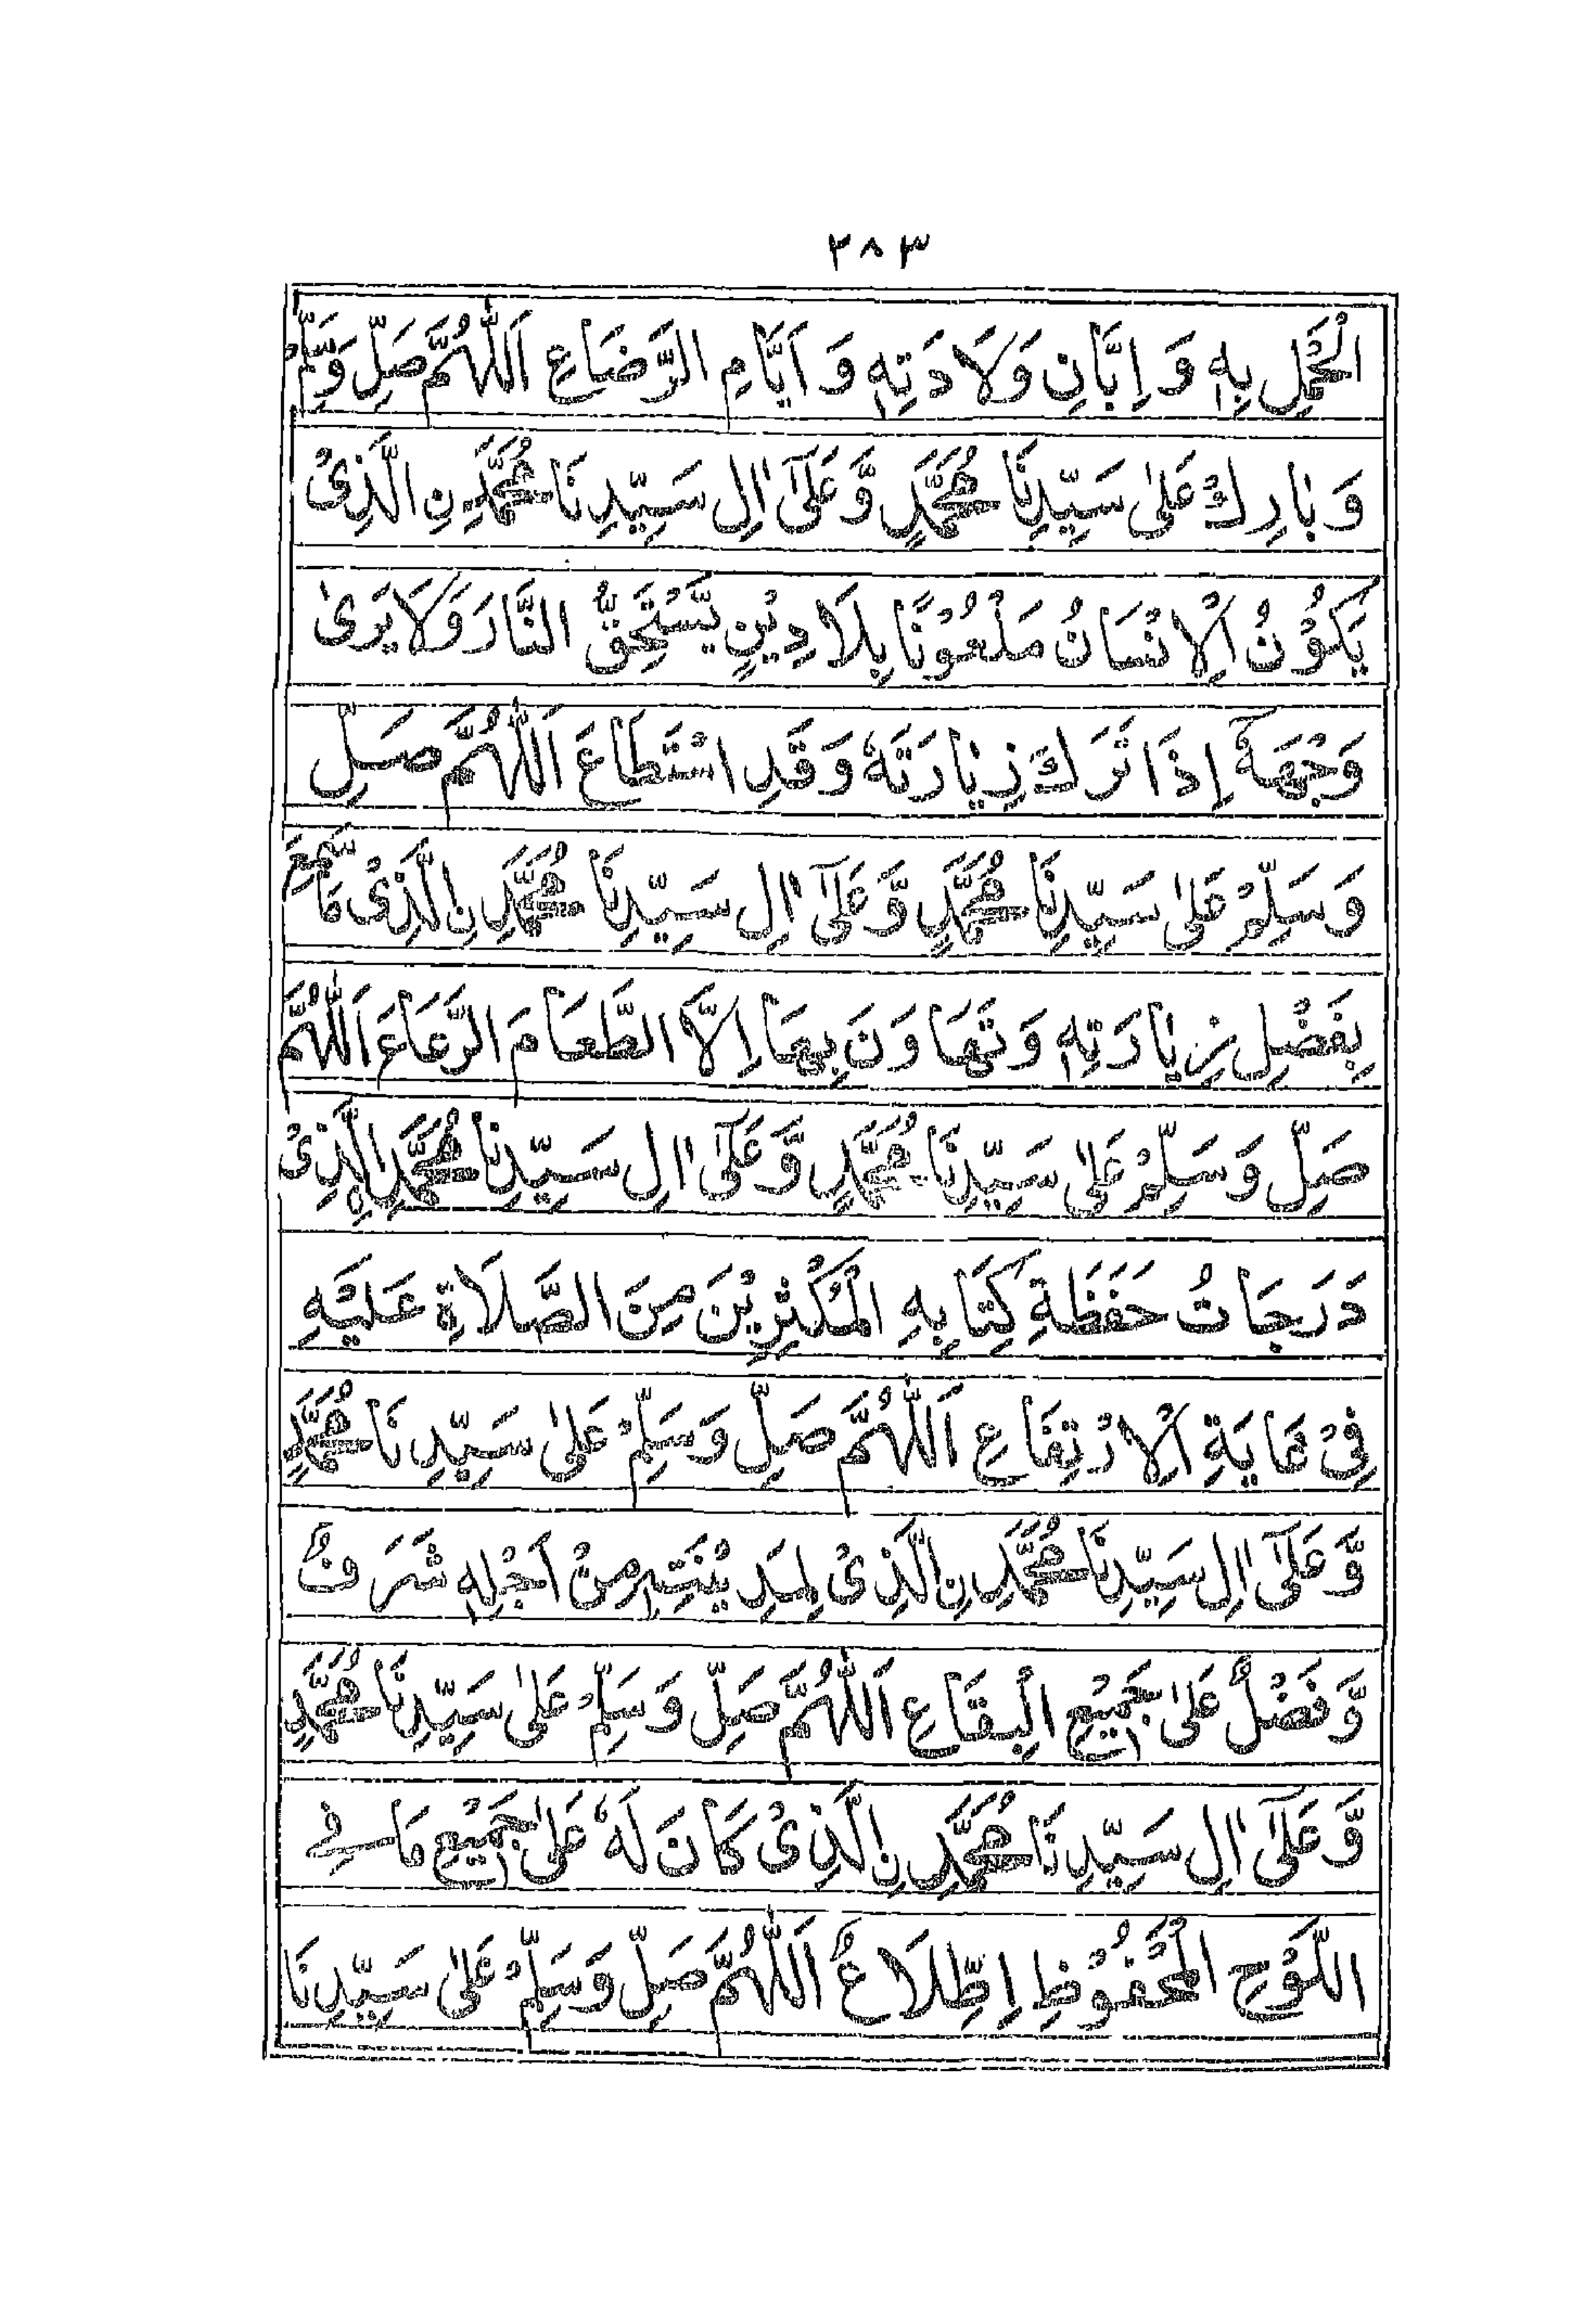 ٢٨٣
الْحَمْلِ بِهٖ وَ اِبَّانِ وَلَادَتِهٖ وَ اَيَّامِ الرَّضَاعِ اَللّٰهُمَّ صَلِّ وَسَلِّمْ
وَ بَارِكْ عَلٰى سَيِّدِنَا مُحَمَّدٍ وَّعَلٰٓى اٰلِ سَيِّدِنَا مُحَمَّدِ نِ الَّذِىْ
يَكُوْنُ الْاِنْسَانُ مَلْعُوْنًا بِلَا دِيْنٍ يَّسْتَحِقُّ النَّارَ وَلَا يَرٰى
وَجْهَهٗ اِذَا تَرَكَ زِيَارَتَهٗ وَقَدِ اسْتَطَاعَ اَللّٰهُمَّ صَلِّ
وَسَلِّمْ عَلٰى سَيِّدِنَا مُحَمَّدٍ وَّعَلٰٓى اٰلِ سَيِّدِنَا مُحَمَّدِ نِ الَّذِىْ مَا سَمِعَ
بِفَضْلِ زِيَارَتِهٖ وَتَهَاوَنَ بِهَا اِلَّا الطَّعَامَ الرَّعَاعَ اَللّٰهُمَّ
صَلِّ وَسَلِّمْ عَلٰى سَيِّدِنَا مُحَمَّدٍ وَّعَلٰٓى اٰلِ سَيِّدِنَا مُحَمَّدِ نِ الَّذِىْ
دَرَجَاتُ حَفَظَةِ كِتَابِهِ الْمُكْثِرِيْنَ مِنَ الصَّلَاةِ عَلَيْهِ
فِىْ غَايَةِ الْاِرْتِفَاعِ اَللّٰهُمَّ صَلِّ وَسَلِّمْ عَلٰى سَيِّدِنَا مُحَمَّدٍ
وَّعَلٰٓى اٰلِ سَيِّدِنَا مُحَمَّدِ نِ الَّذِىْ مِنْ اَجْلِهٖ شَرَفٌ
وَّفَضْلٌ عَلٰى جَمِيْعِ الْبِقَاعِ اَللّٰهُمَّ صَلِّ وَسَلِّمْ عَلٰى سَيِّدِنَا مُحَمَّدٍ
وَّعَلٰٓى اٰلِ سَيِّدِنَا مُحَمَّدِ نِ الَّذِىْ كَانَ لَهٗ عَلٰى جَمِيْعِ مَا فِى
اللَّوْحِ الْمَحْفُوْظِ اِطِّلَاعٌ اَللّٰهُمَّ صَلِّ وَسَلِّمْ عَلٰى سَيِّدِنَا